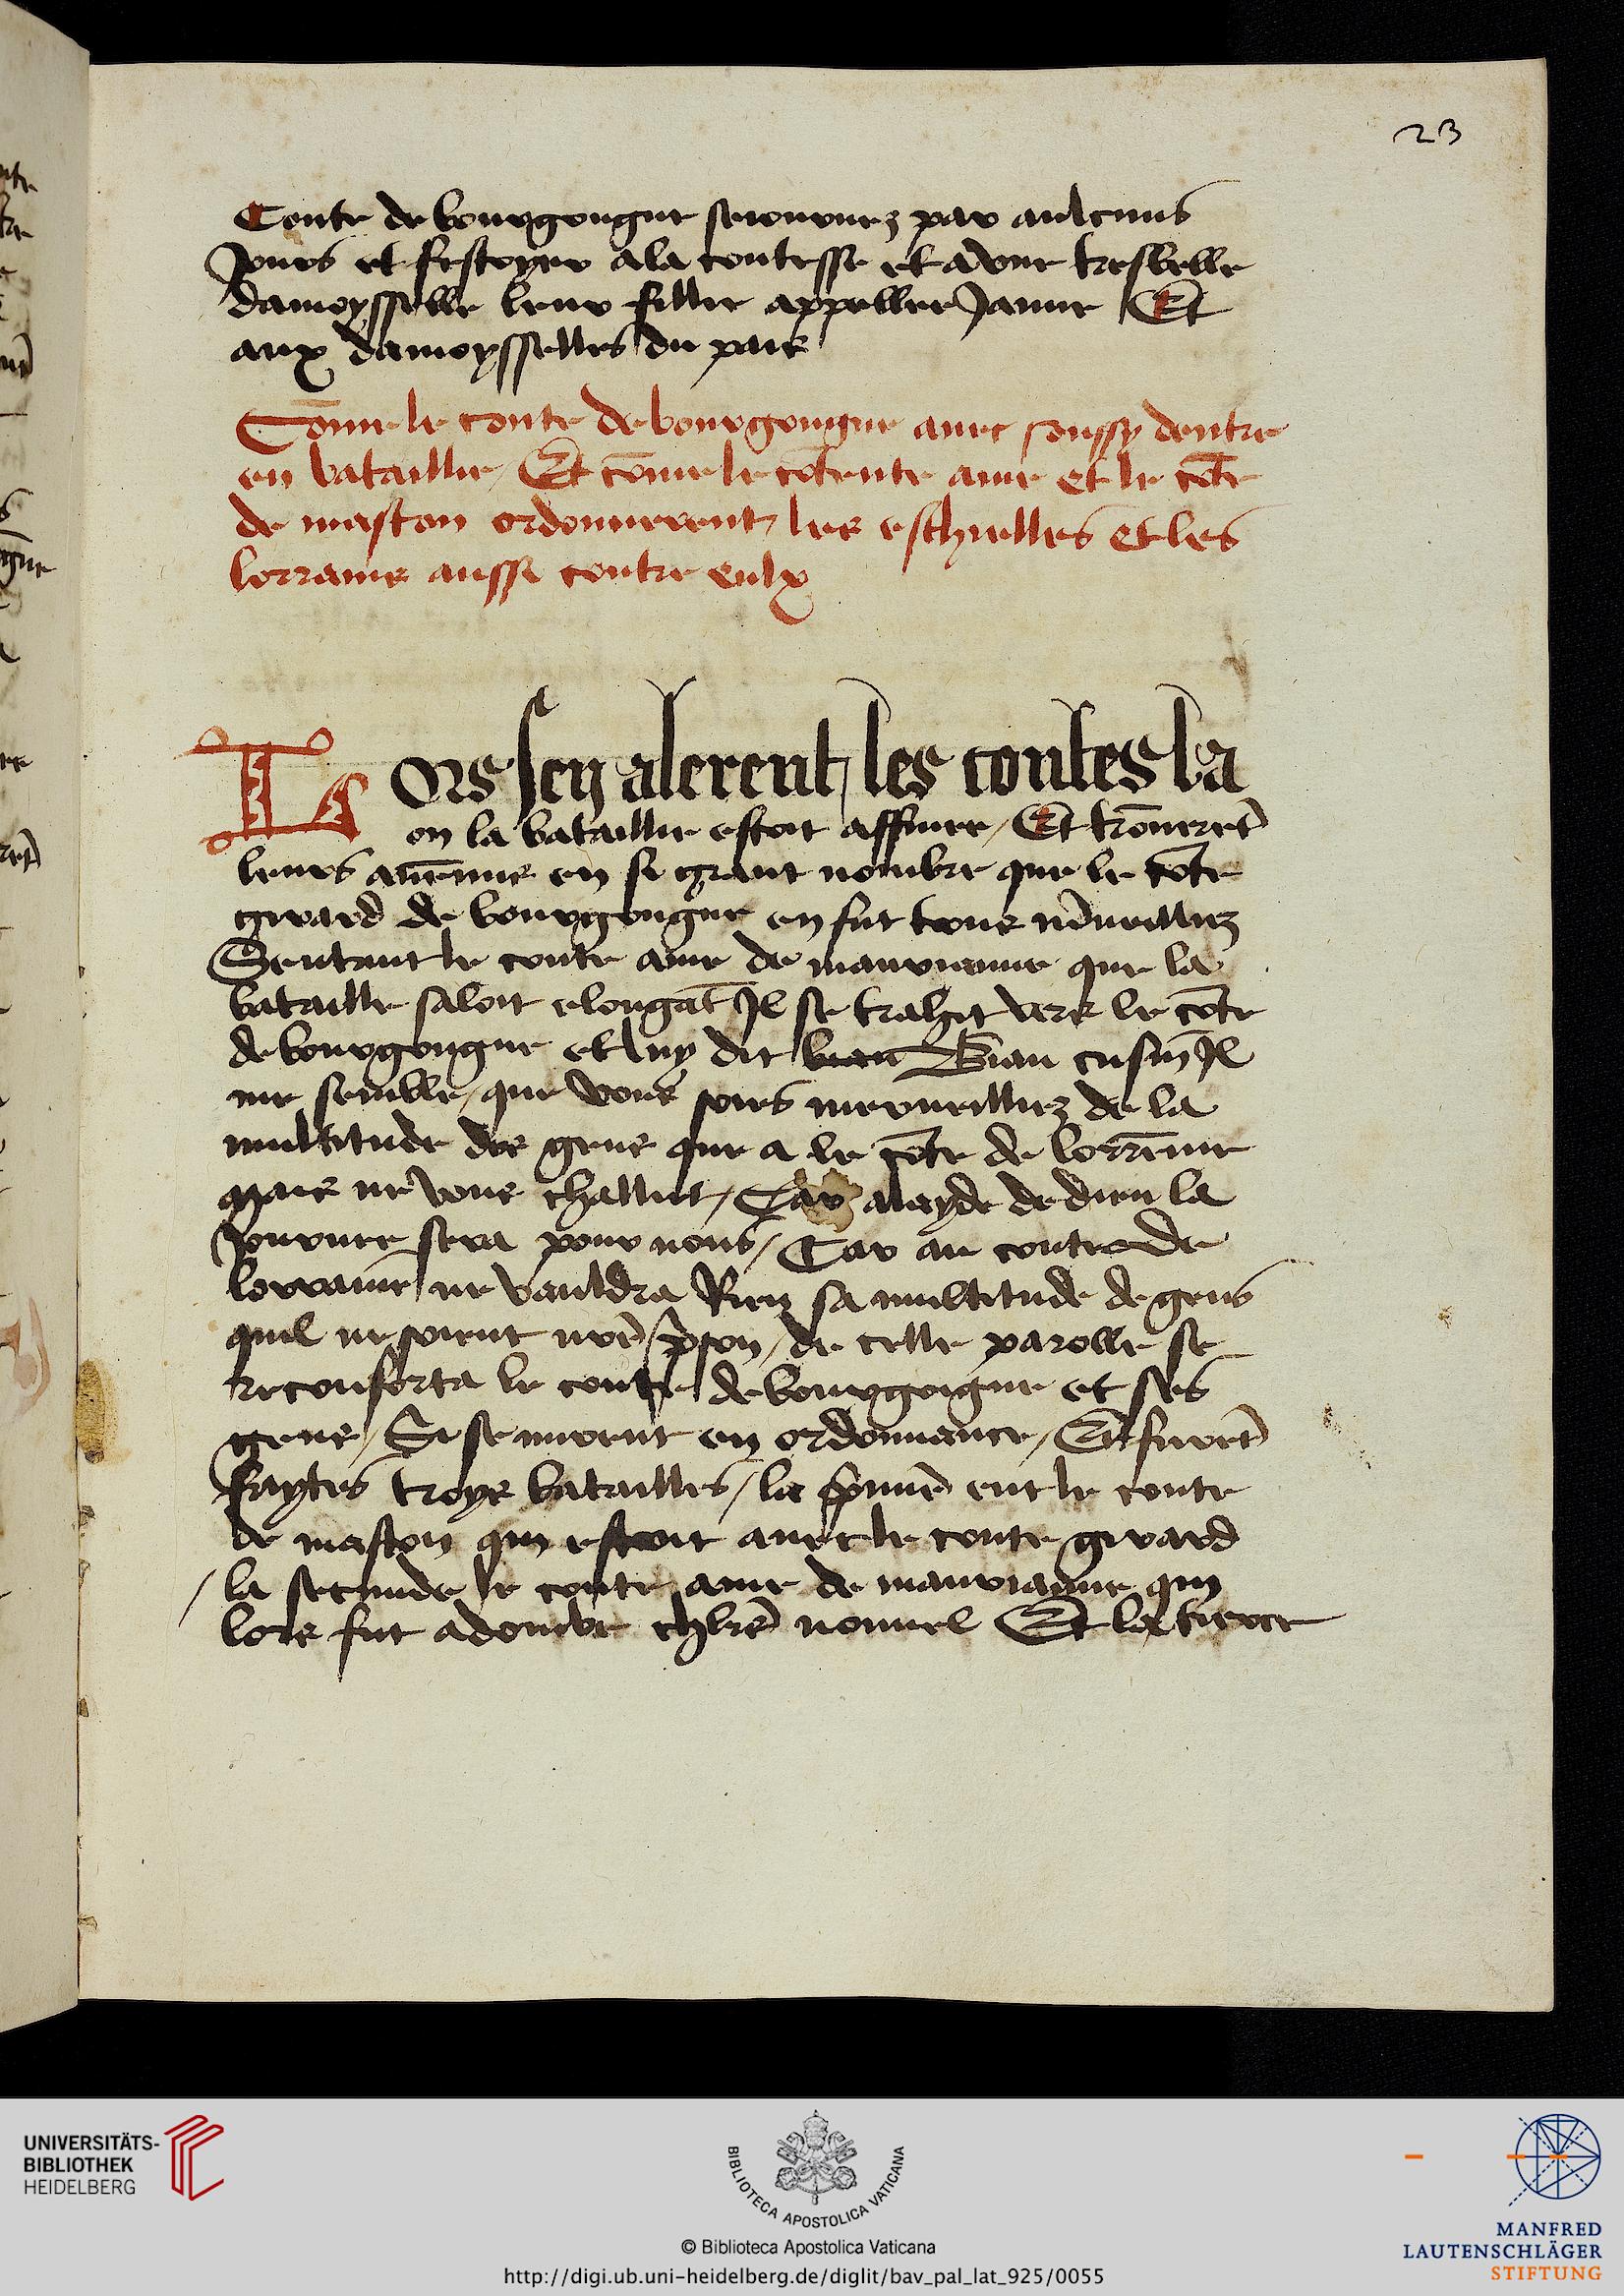 23
Conte de bourgongne seiournez par aulcuns
Jours et festoyer a la contesse et a vne tresbelle
damoysselle leur fillie appellee Janne Et
aux damoysselles du pais
Cōme le conte de bourgongne auec soussy dentre
en bataillie / Et cōme le cōte ame et le cōte
de mascon ordonnerent les eschielles et les
lorrains aussi contre eulx
Lors sen alerent les contes la
ou la bataillie estoit assinee / Et trouueret̄
leurs anēmis en si grant nombre que le cōte
girard de bourgongne en fut tous m̄ueilliez
Sentant le conte ame de maurianne que la
bataille saloit elongāt Il se trahit vers le cōte
de bourgongne et luy dit Biau cusin Il
me semble / que vous soies merueilliez de la
multitude des gens que a le cōte de lorrēnne
mais ne vous challiet / Car a layde de dieu la
Journee sera pour nous / Car au conte de
lorraine ne vauldra Rien sa multitude de gens
quil ne soient nr̄e p̄son / de celle parolle se
reconforta le conte de bourgoigne et ses
gens / Si se mirent en ordonnance / Et furet̄
faytes troys batailles / la p̄mie͂ eut le conte
de mascon qui estoit auec le conte girard
/ la secunde le conte ame de maurianne qui
lors fut adoube chl̄r nouuel Et la tierce
UNIVERSITÄTS-
BIBLIOTHEK
HEIDELBERG
BIBLIOTECA APOSTOLICA VATICANA
© Biblioteca Apostolica Vaticana
http://digi.ub.uni-heidelberg.de/diglit/bav_pal_lat_925/0055
MANFRED
LAUTENSCHLÄGER
STIFTUNG